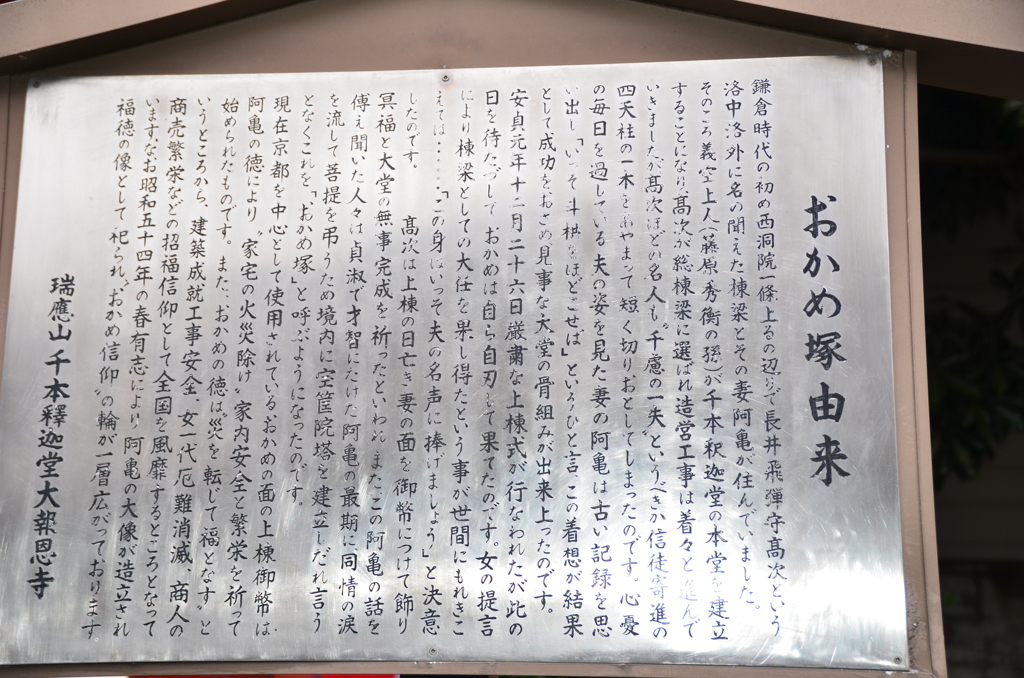 おかめ塚由来
鎌倉時代の初め西洞院一條上るの辺りで長井飛驒守高次という
洛中洛外に名の聞えた棟梁とその妻阿亀が住んでいました。
そのころ義空上人(藤原秀衡の孫)が千本釈迦堂の本堂を建立
することになり、高次が総棟梁に選ばれ造営工事は着々と進んで
いきましたが高次ほどの名人も〝千慮の一失〟というべきか信徒寄進の
四天柱の一本をあやまって短く切りおとしてしまったのです。心憂
の毎日を過している夫の姿を見た妻の阿亀は古い記録を思
い出し「いっそ斗栱をほどこせば」というひと言、この着想が結果
として成功をおさめ見事な大堂の骨組みが出来上ったのです。
安貞元年十二月二十六日厳粛な上棟式が行なわれたが此の
日を待たづしておかめは自ら自刃して果てたのです。女の提言
により棟梁としての大任を果し得たという事が世間にもれきこ
えては・・・・・「この身はいっそ夫の名声に捧げましょう」と決意
したのです。 高次は上棟の日亡き妻の面を御幣につけて飾り
冥福と大堂の無事完成を祈ったといわれ、またこの阿亀の話を
傳え聞いた人々は貞淑で才智にたけた阿亀の最期に同情の涙
を流して菩提を弔うため境内に宝筐院塔を建立しだれ言う
となくこれを「おかめ塚」と呼ぶようになったのです。
現在京都を中心として使用されているおかめの面の上棟御幣は
阿亀の徳により〝家宅の火災除け〟〝家内安全と繁栄を祈って
始められたものです。また、おかめの徳は〝災を転じて福となす〟と
いうところから、建築成就工事安全、女一代厄難消滅、商人の
商売繁栄などの招福信仰として全国を風靡するところとなって
います。なお昭和五十四年の春有志により阿亀の大像が造立され
福徳の像として祀られ、〝おかめ信仰〟の輪が一層広がっております
瑞應山千本釋迦堂大報恩寺